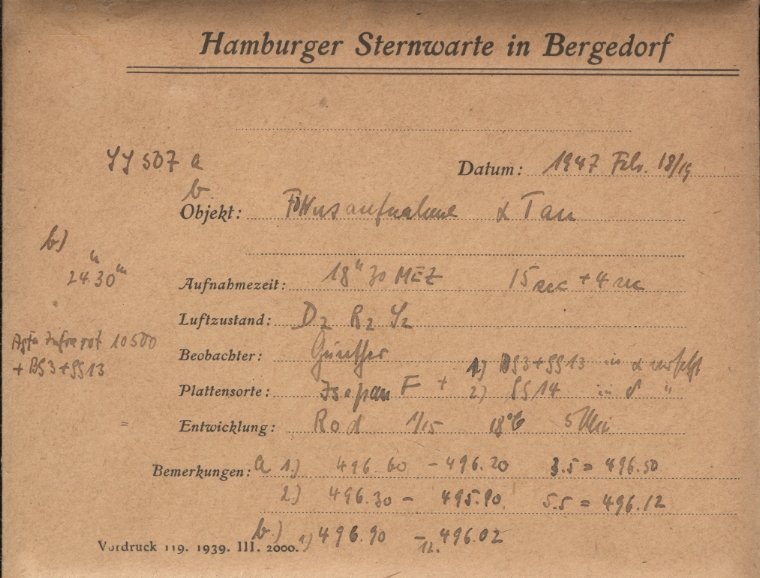 Hamburger Sternwarte in Bergedorf
507 a
b
Datum: 1947 Feb. 18/19
Objekt: Fokusaufnahme α Tau
b)
24h 30m
Aufnahmezeit: 18h 30 MEZ 15 sec + 4 sec
Luftzustand: D2 R2 S2
Agfa Infrarot 10500
+ BG3 + GG13
Beobachter: Günther
1) BG3 + GG13 in α versetzt
Plattensorte: Isopan F + 2) GG14 in δ "
Entwicklung: Rod 1/15 18°C 5 Min
Bemerkungen: a 1) 496.60 - 496.20 3.5 = 496.50
2) 496.30 - 495.90 5.5 = 496.12
b.) 1) 496.90 - 12. 496.02
Vordruck 119. 1939. III. 2000.